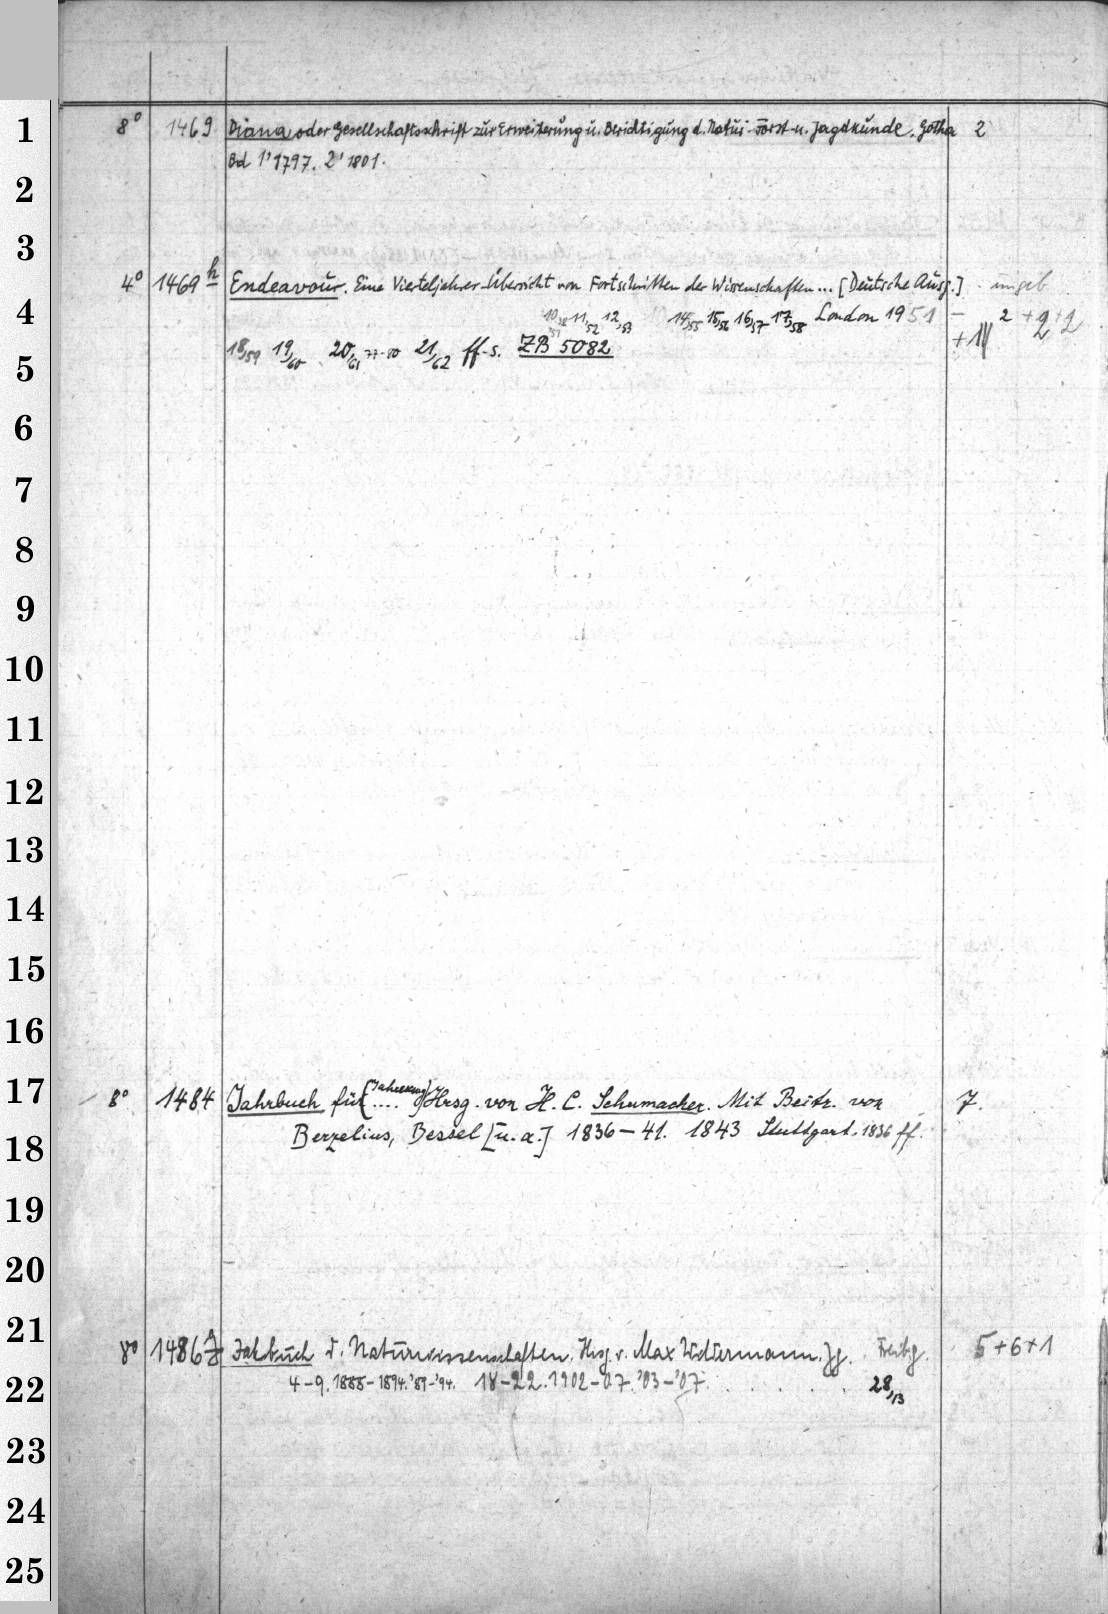 1
8° 1469 Diana oder Gesellschaftsschrift zur Erweiterung u. Berichtigung d. Natur- Forst- u. Jagdkunde. Gotha 2
Bd 1' 1797. 2' 1801.
2
3
4° 1469 h Endeavour. Eine Vierteljahrer-Übersicht von Fortschritten der Wissenschaften... [Deutsche Ausg.] - ungeb
4
10, 11,52 12,53 14,55 15,56 16,57 17,58 London 1951 – 2 + 2 + 2
18,59 19,60 20,61 21,62 ff-s. ZB 5082
5
6
7
8
9
10
11
12
13
14
15
16
17
8° 1484 Jahrbuch für (.... Jahreszug) Hrsg. von H. C. Schumacher. Mit Beitr. von 7.
Berzelius, Bessel [u. a.] 1836–41. 1843 Stuttgart. 1836 ff.
18
19
20
21
8° 1486 Jahrbuch d. Naturwissenschaften. Hrsg. v. Max Wildermann. Jg. Freibg. 5+6+1
22
4–9. 1888–1894. '89–'94. 18–22. 1902–07. '03–'07. 28,13
23
24
25